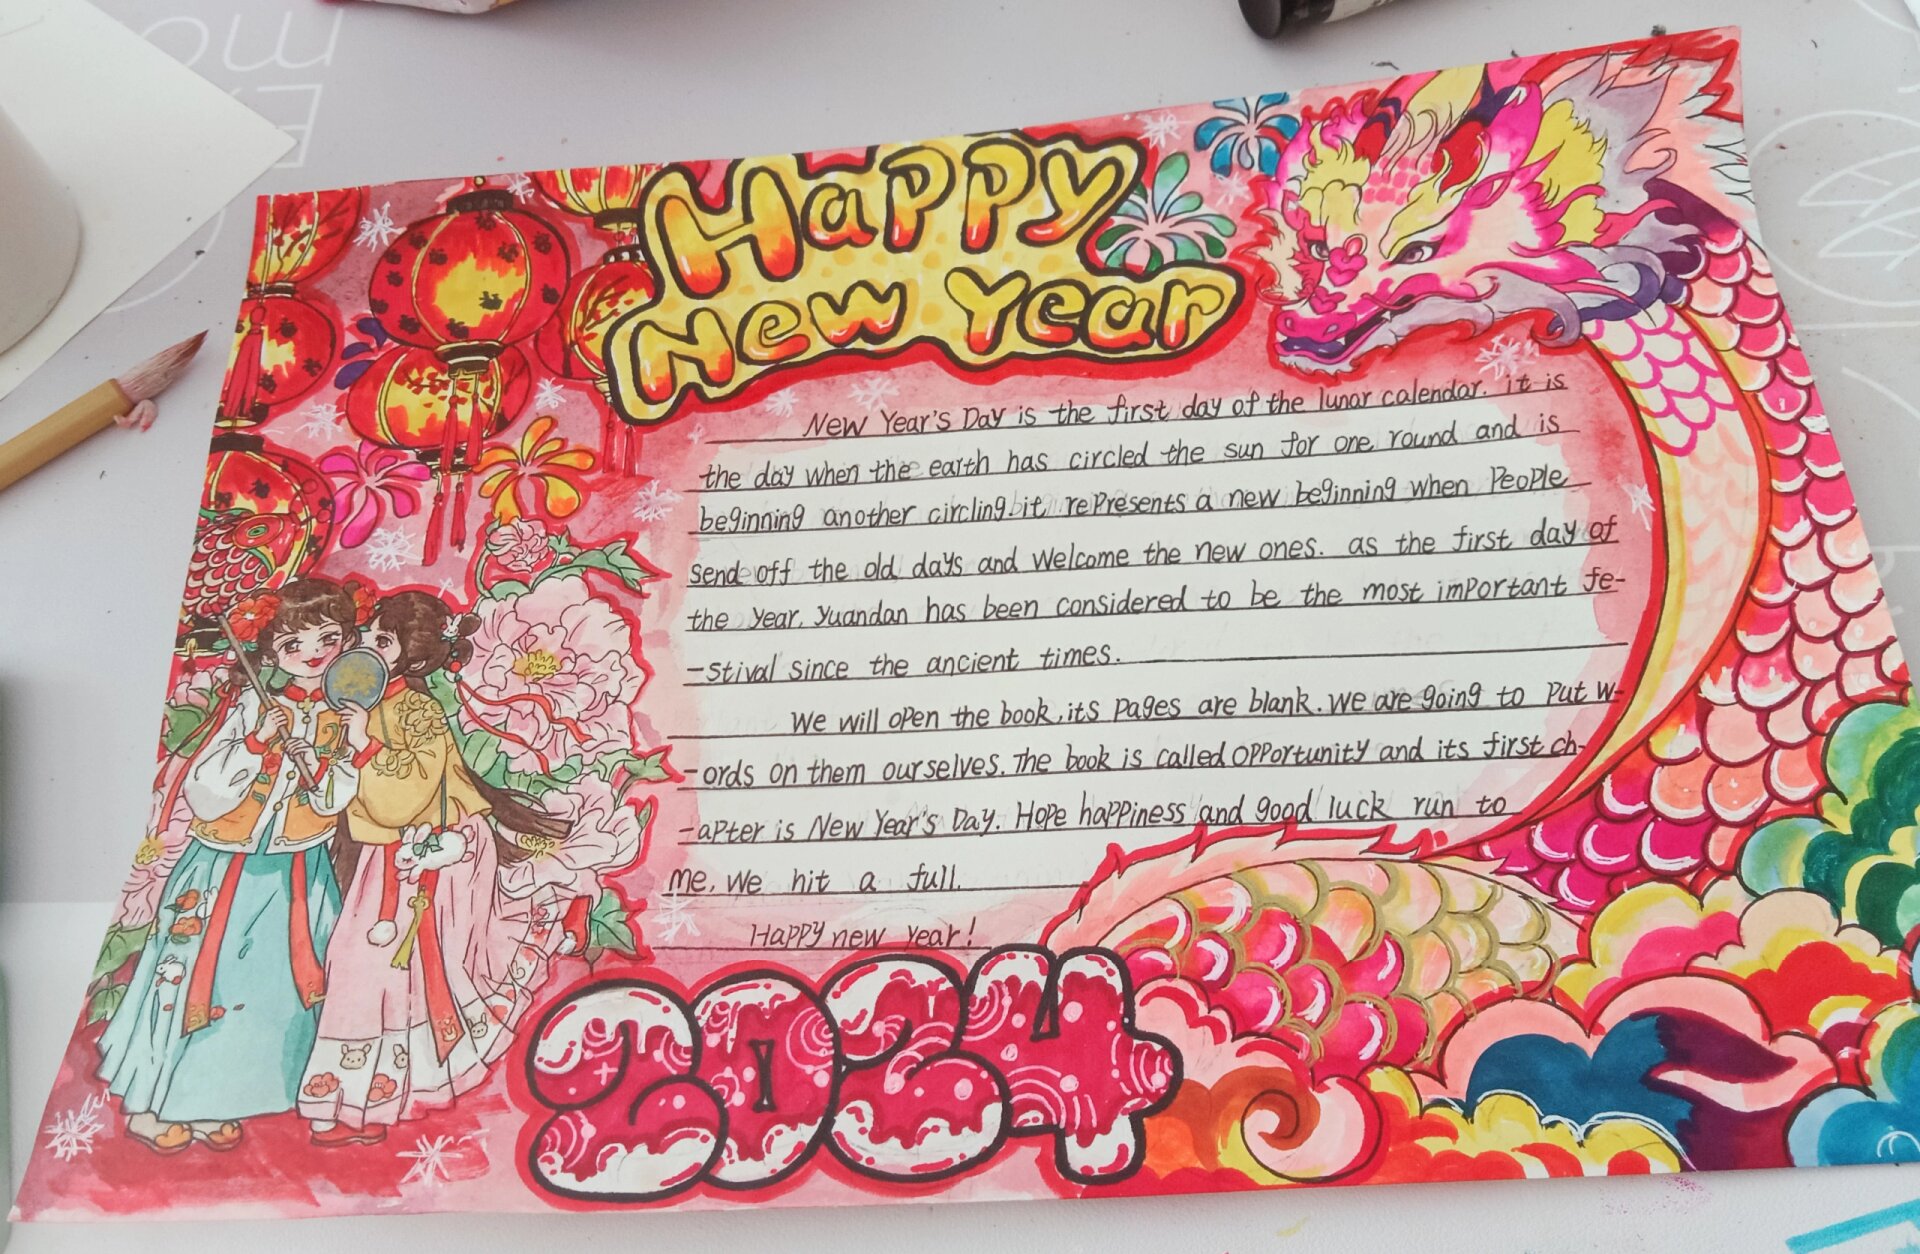 Happy
New Year
New Year's Day is the first day of the lunar calendar. it is
the day when the earth has circled the sun for one round and is
beginning another circling.it, represents a new beginning when people
send off the old days and welcome the new ones. as the first day of
the year, yuandan has been considered to be the most important fe-
-stival since the ancient times.
We will open the book, its pages are blank. We are going to put w-
-ords on them ourselves. The book is called opportunity and its first ch-
-apter is New Year's Day. Hope happiness and good luck run to
me, we hit a full.
Happy new year!
2024